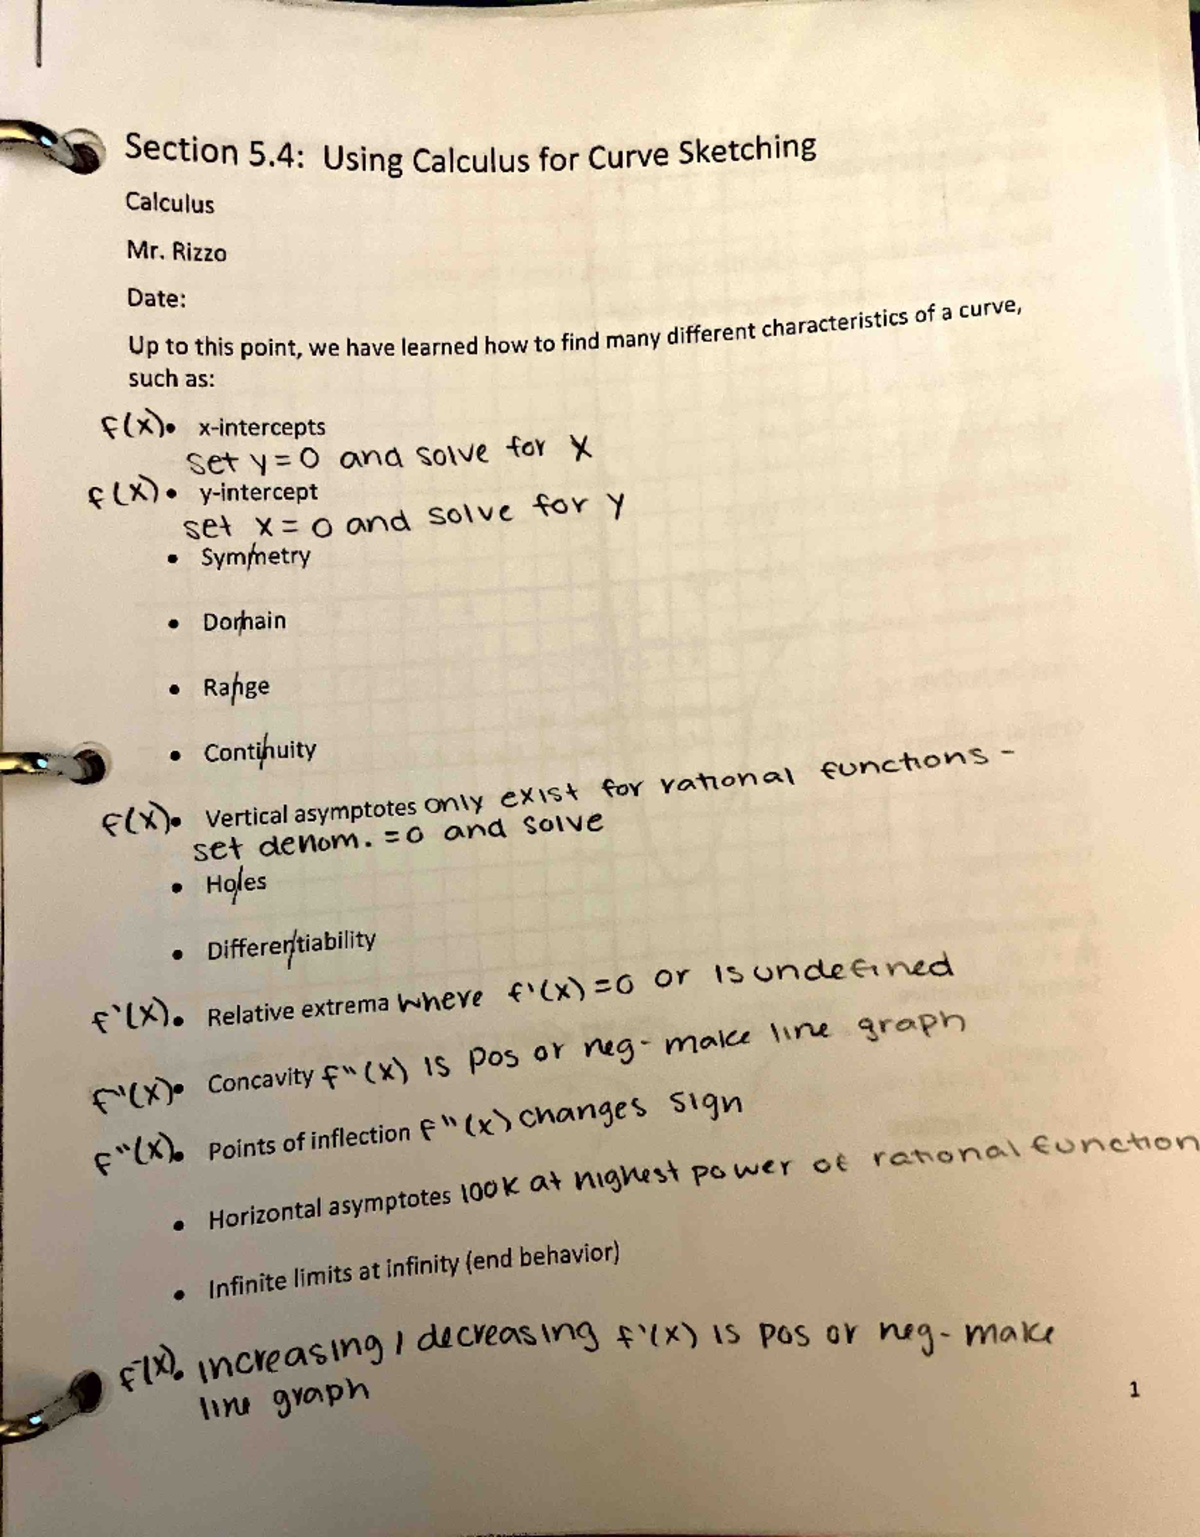 Section 5.4: Using Calculus for Curve Sketching
Calculus
Mr. Rizzo
Date:
Up to this point, we have learned how to find many different characteristics of a curve,
such as:
f(x) • x-intercepts
set y=0 and solve for x
f(x) • y-intercept
set x=0 and solve for y
• Symmetry
• Domain
• Range
• Continuity
f(x) • Vertical asymptotes only exist for rational functions -
set denom. =0 and solve
• Holes
• Differentiability
f'(x) • Relative extrema where f'(x)=0 or is undefined
f"(x) • Concavity f"(x) is pos or neg - make line graph
f"(x) • Points of inflection f"(x) changes sign
• Horizontal asymptotes look at highest power of rational function
• Infinite limits at infinity (end behavior)
f'(x) • increasing / decreasing f'(x) is pos or neg - make
line graph
1